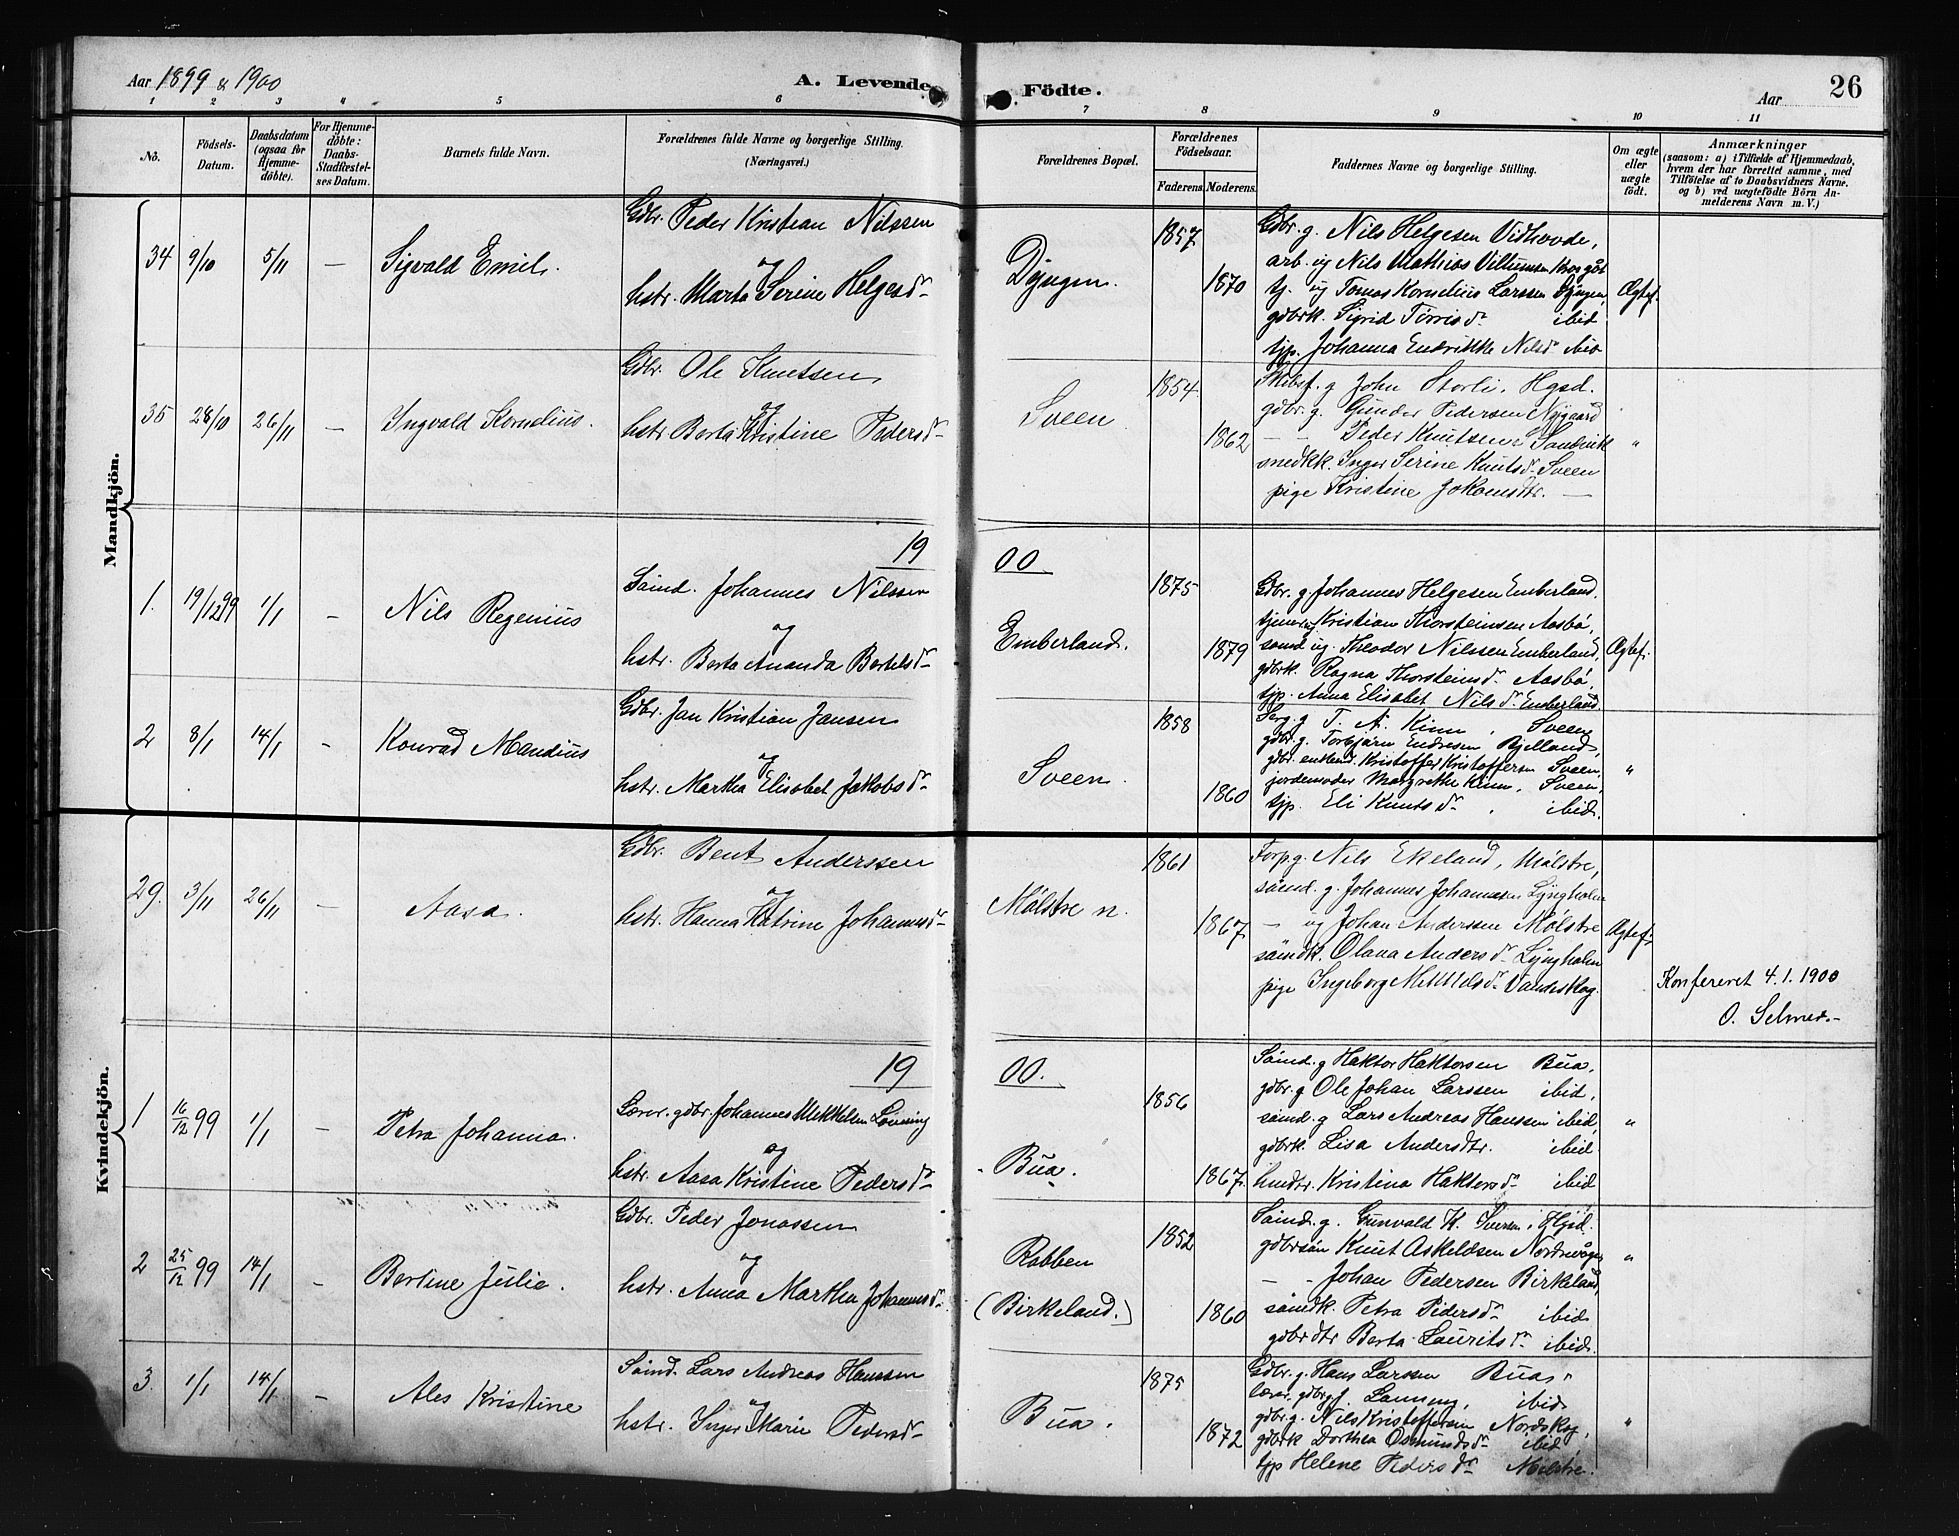 Aar 1899 & 1900
A. Levende
Födte.
Aar
26
1 2 3 4 5 6 7 8 9 10 11
No.
Födsels-Datum.
Daabsdatum (ogsaa for Hjemme-döbte).
For Hjemme-döbte: Daabs-Stadfæstel-ses Datum.
Barnets fulde Navn.
Forældrenes fulde Navne og borgerlige Stilling. (Næringsvei.)
Forældrenes Bopæl.
Forældrenes Födselsaar.
Faderens. Moderens.
Faddernes Navne og borgerlige Stilling.
Om ægte eller uægte födt.
Anmærkninger
(saasom: a) i Tilfælde af Hjemmedaab, hvem der har forrettet samme, med Tilföielse af to Daabsvidners Navne. og b) ved uægtefödte Börn An-melderens Navn m. V.)
Mandkjön.
34 9/10 5/11 — Sigvald Emil.
Gdbr. Peder Kristian Nilssen
og
hstr. Marta Serine Helgesdr
Djugen.
1857
1870
Gdbr. g. Nils Helgesen Vidhovde,
arb. ug Nils Mathias Villumsen
tj. ug Tomas Kornelius Larssen
gdbrk. Sigrid Tørrisdr ibid
tjp. Johanna Endrikke Nilsdr ibid
Ægtef.
35 28/10 26/11 — Ingvald Kornelius.
Gdbr. Ole Knutsen
og
hstr. Berta Kristine Pedersdr
Sveen
1854
1862
Skibsf. g John Storli, Hgsd.
gdbr. g. Gunder Pedersen Nygaard
— — Peder Knutsen Sandvik
snedkk. Inger Serine Knutsdr Sveen
pige Kristine Johansdtr. —
"
19
00
1. 19/12 99 1/1 — Nils Regenius
Såmd. Johannes Nilssen
og
hstr. Berta Amanda Bertelsdr
Emberland.
1875
1879
Gdbr. g. Johannes Helgesen Emberland,
tjener ug Kristian Thorsteinsen Aasbö,
sømd ug. Theodor Nilssen Emberland,
gdbrk. Ragna Thorsteinsdr Aasbö,
tjp. Anna Elisabet Nilsdr Emberland
Ægtef.
2 8/1 14/1 - Konrad Mandius
Gdbr. Jan Kristian Jansen
og
hstr. Martha Elisabet Jakobsdr
Sveen.
1858
1860
Serg. g T. A. Kinn, Sveen
gdbr. g. Torbjørn Endresen Bjelland,
gdbr. enkemd. Kristoffer Kristoffersen Sveen,
jordemoder Margrethe Kinn, Sveen,
tjp. Eli Knutsdr, ibid.
"
Kvindekjön.
29. 3/11 26/11 — Aasa.
Gdbr. Bent Anderssen
og
hstr. Hanna Katrine Johannesdr
Mölstre n.
1861
1867
Forp. g. Nils Ekeland, Mölstre,
sømd. g. Johannes Johannesen Lyngholm
— ug Johan Anderssen Mölstre
sømdk. Olana Andersdr Lyngholm
pige Ingeborg Mikkelsdr Vandaskog.
Ægtef.
Konfereret 4.1.1900
O. Selmer.-
19
00.
1 16/12 99 1/1 — Petra Johanna.
Lærer. gdbr. Johannes Mikkelsen Lönning
og
hstr. Aasa Kristine Pedersdr
Bua.
1856
1867
Sømd. g Haktor Haktorsen Bua,
gdbr. g Ole Johan Larssen ibid,
sømd. g Lars Andreas Hanssen ibid,
gdbrk. Lisa Andersdtr. ibid
husdtr. Kristina Haktorsdr ibid
"
2 25/12 99 14/1 - Bertine Julie.
Gdbr. Peder Jonassen
og
hstr. Anna Martha Johannesdr
Rabben
(Birkeland.)
1852
1860
Sømd. g. Gunvald K. Hgsd.
gdbrsøn Knut Askeldsen
— - Johan Pedersen Birkeland,
sømdk. Petra Pedersdr ibid
gdbrdtr Berta Lauritsdr ibid.
"
3. 1/1 14/1 - Ales Kristine
Sømd. Lars Andreas Hanssen
og
hstr. Inger Marie Pedersdr
Bua.
1875
1872
Gdbr. g. Hans Larssen Bua,
lærer, gdbr. g J. Lønning, ibid
gdbr. g. Nils Kristoffersen Nordskog,
gdbrk Dorthea Osmundsdr ibid,
tjp Helene Pedersdr Mölstre.
"